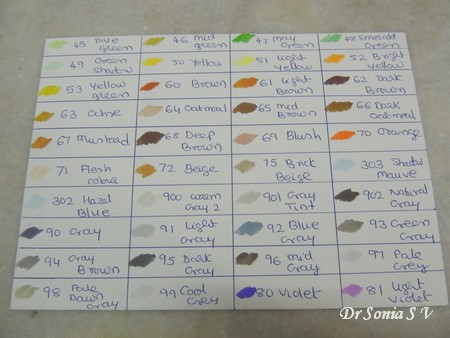 45 Pale green
46 mid green
47 may Green
48 Emerald Green
49 Green shadow
50 Yellow
51 Light Yellow
52 Bright yellow
53 Yellow green
60 Brown
61 Light Brown
62 Dark Brown
63 Ochre
64 Oatmeal
65 Mid Brown
66 Dark Oatmeal
67 Mustard
68 Deep Brown
69 Blush
70 Orange
71 Flesh colour
72 Beige
75 Brick Beige
303 Shadow mauve
302 Hazel Blue
900 Warm Gray 2
901 Gray Tint
902 Natural Gray
90 Gray
91 Light Gray
92 Blue Gray
93 Green Gray
94 Gray Brown
95 Dark Gray
96 Mid Gray
97 Pale Grey
98 Pale Dawn Gray
99 Cool Grey
80 Violet
81 Light Violet
Dr Sonia S V